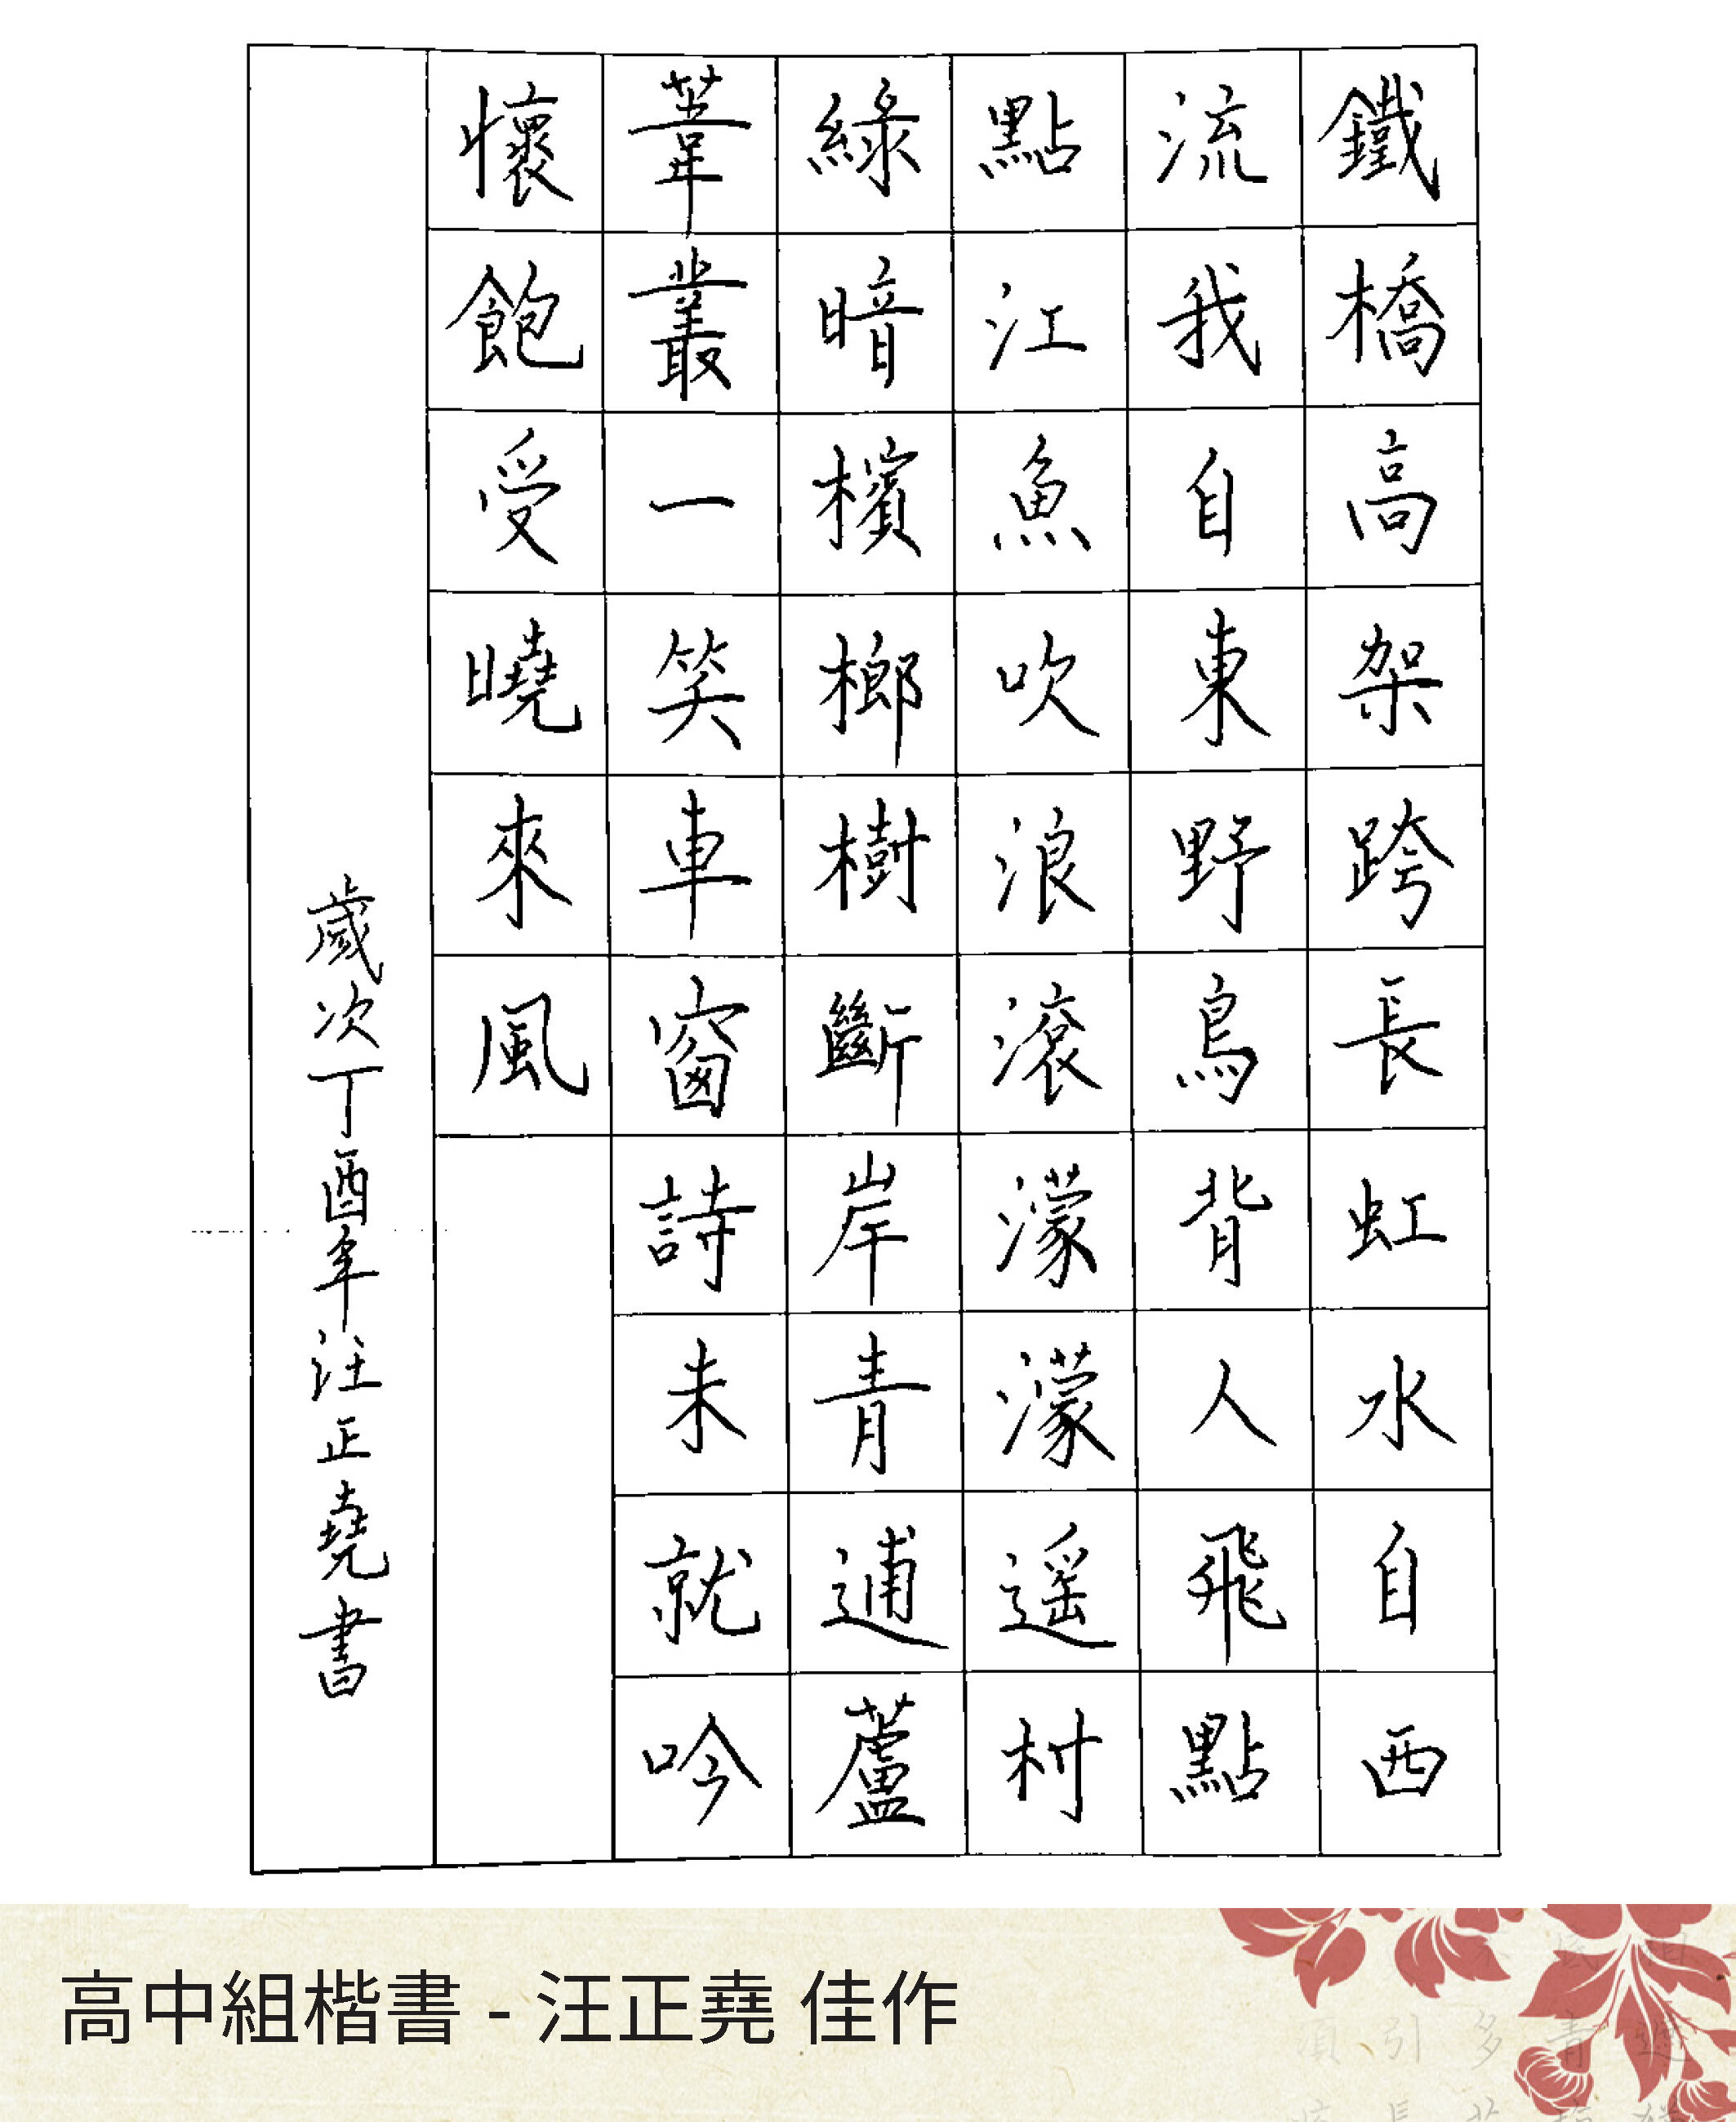 鐵橋高架跨長虹水自西
流我自東野鳥背人飛點
點江魚吹浪滾濛濛遥村
綠暗檳榔樹斷岸青逋蘆
葦叢一笑車窗詩未就吟
懷飽受曉來風
歲次丁酉年汪正堯書
高中組楷書 - 汪正堯 佳作